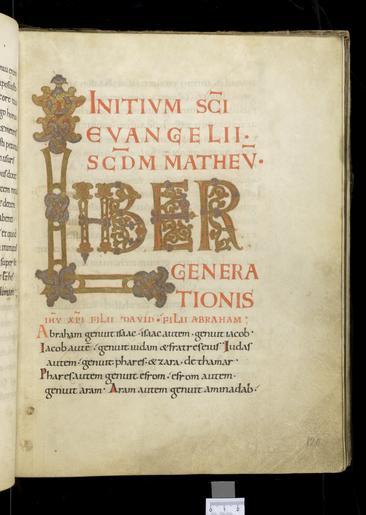 INITIVM SC̄I
EVANGELII·
SC̄DM MATHEV̄·
LIBER
GENERA
TIONIS
IHV̄ XP̄I FILII DAVID· FILII ABRAHAM;
Abraham genuit isaac· isaac autem· genuit iacob·
Iacob autē· genuit iudam & fratres eius· Iudas
autem· genuit phares· & zara· de thamar·
Phares autem genuit esrom· esrom autem·
genuit aram· Aram autem genuit aminadab·